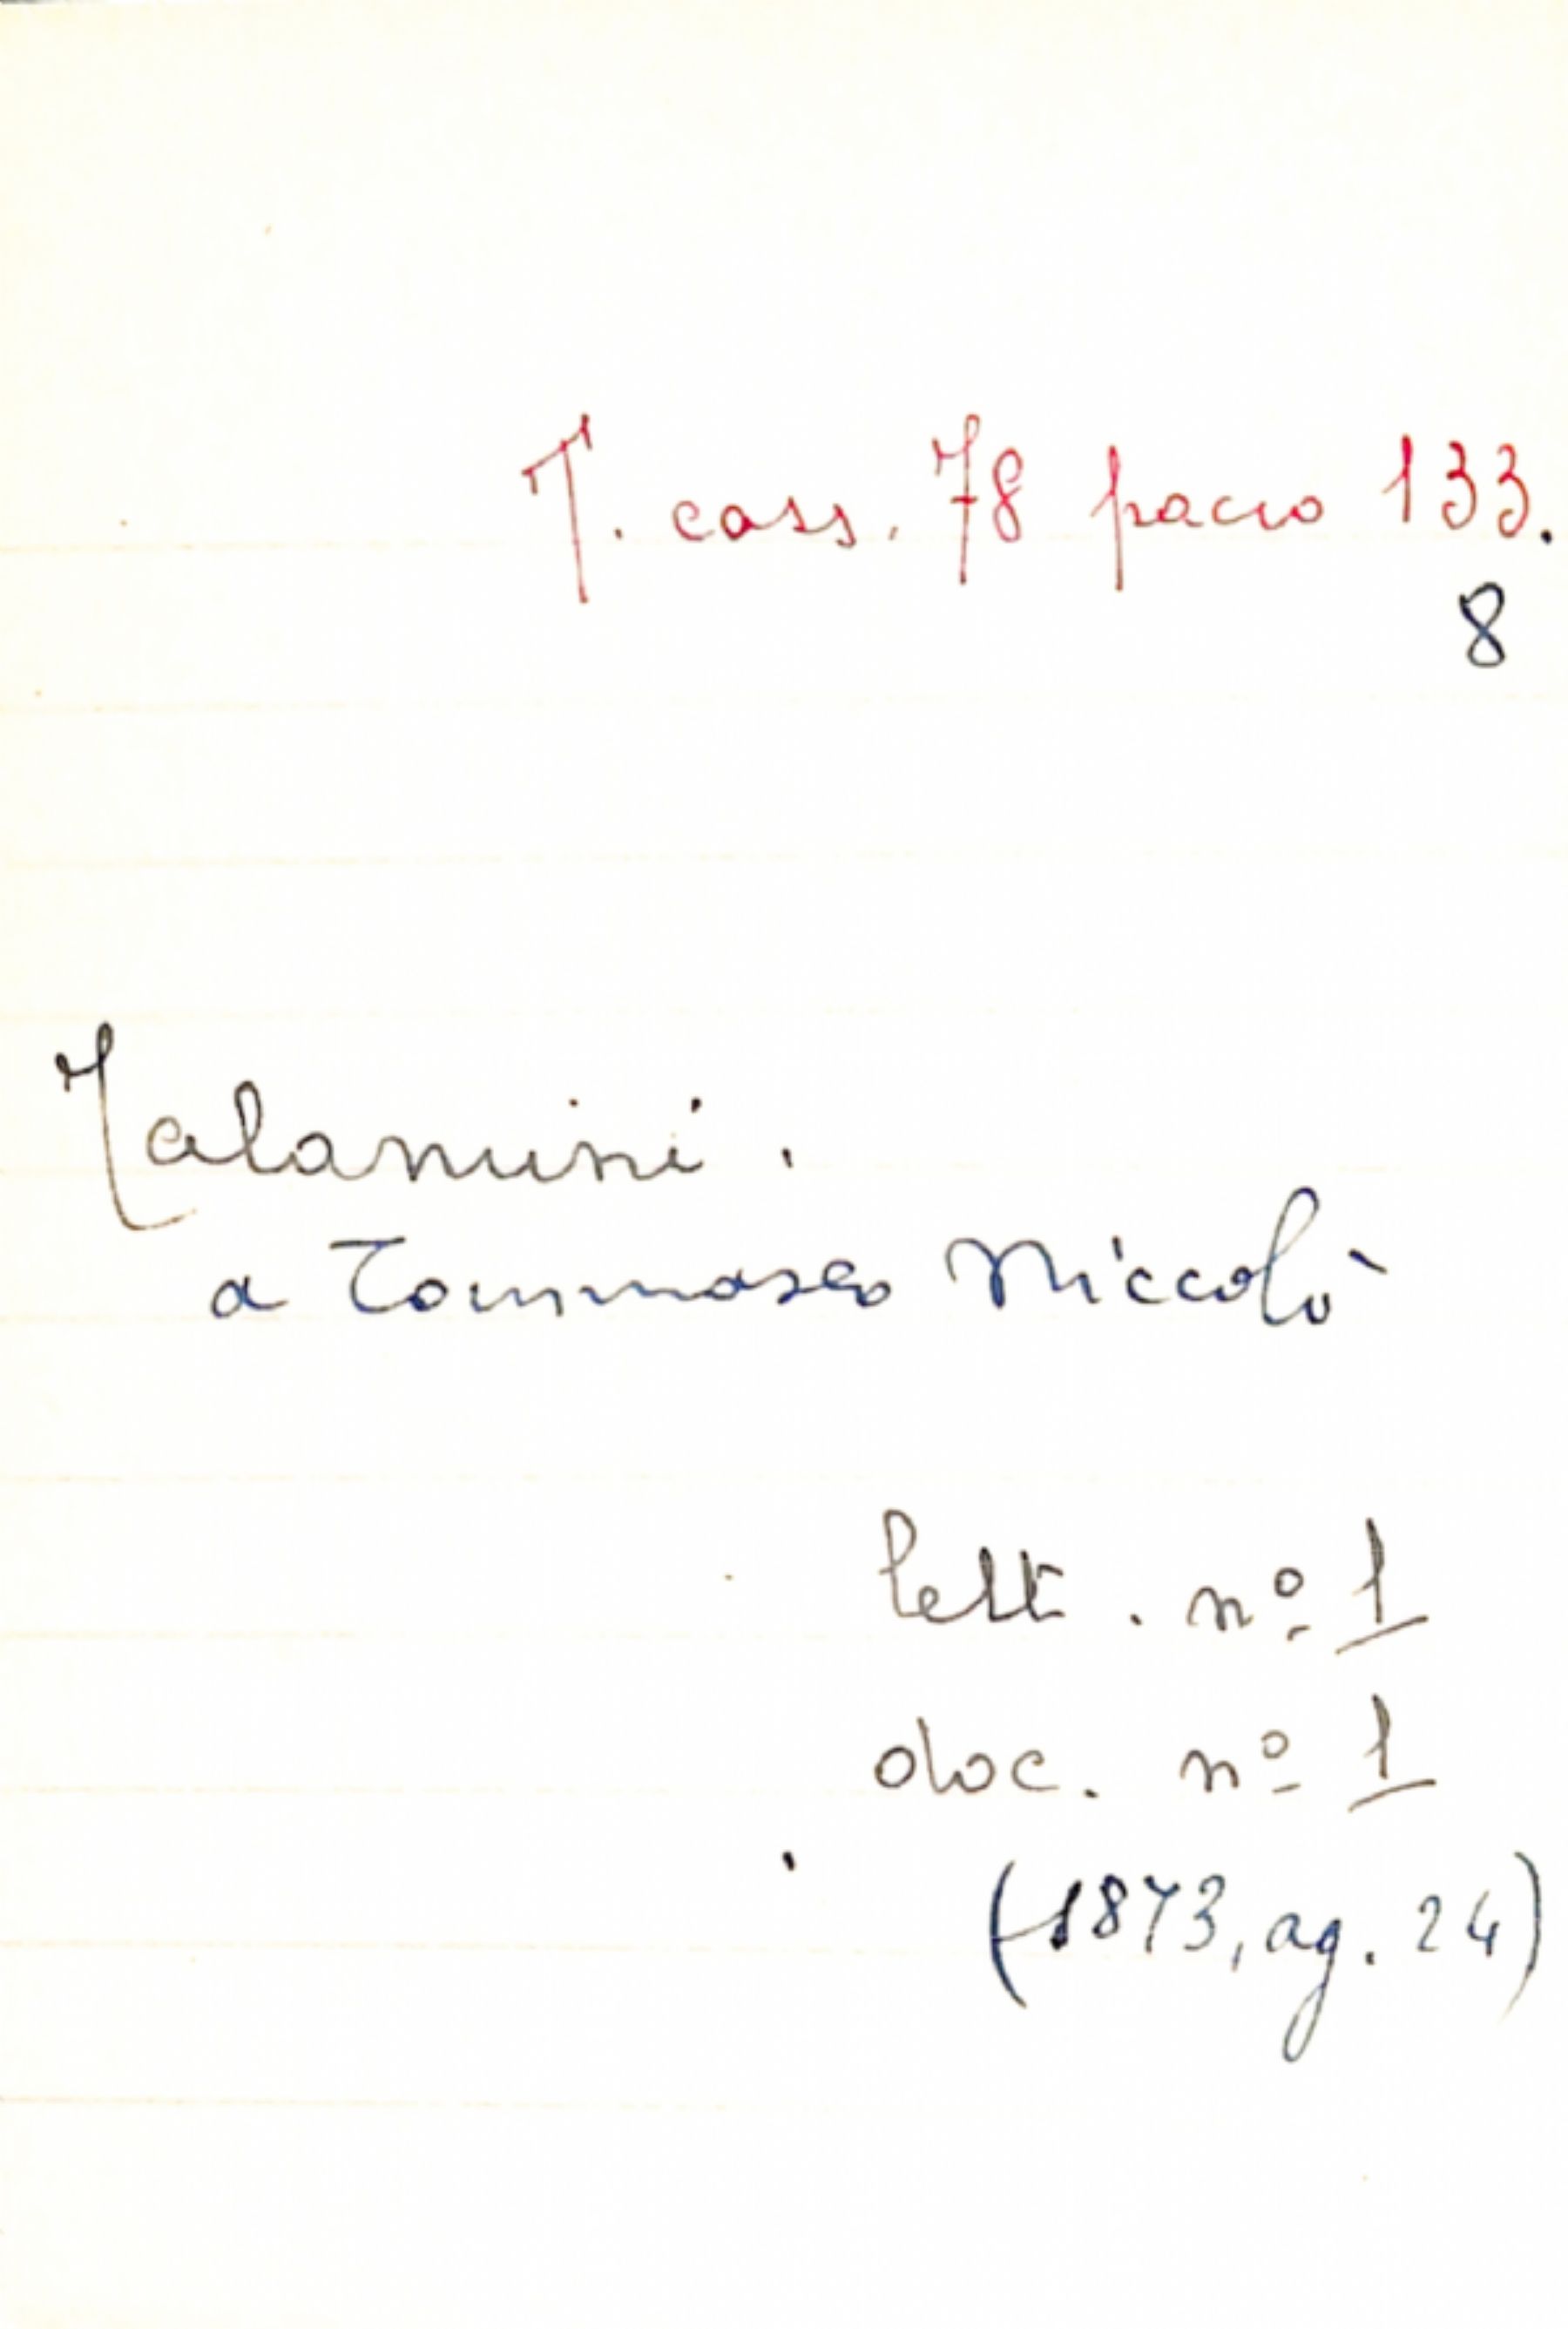 T. cass. 78 pacco 133.
8
Talamini.
a Tommaseo Niccolò
lett. nº 1
doc. nº 1
(1873, ag. 24)